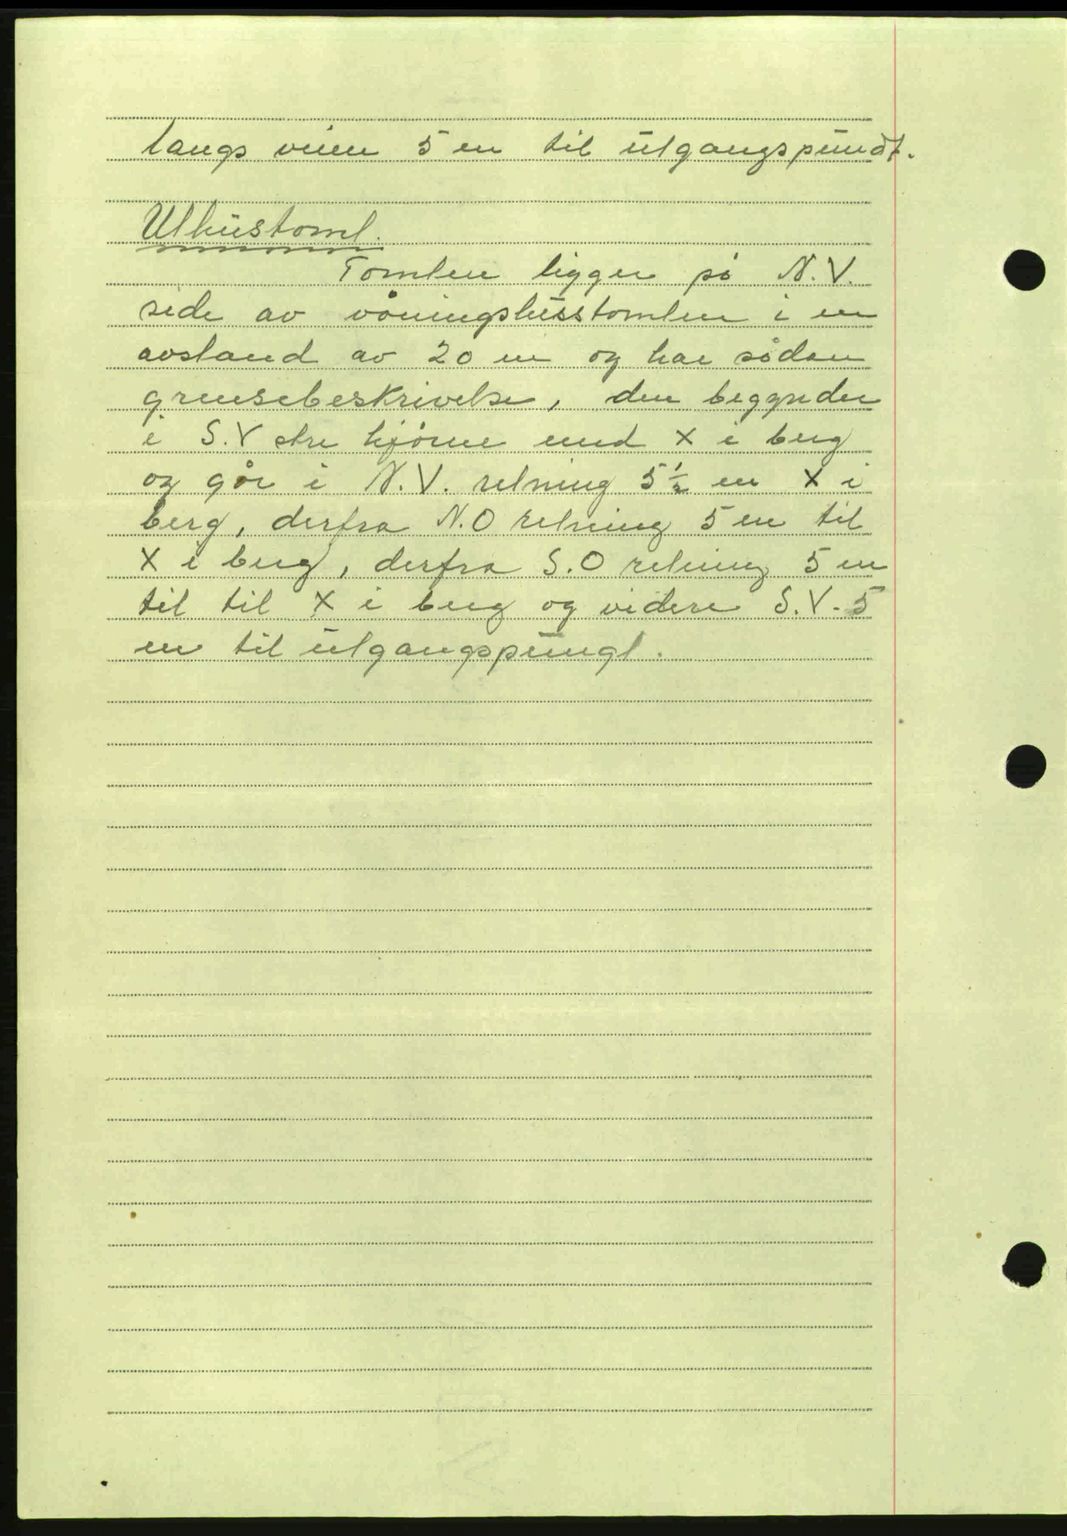 langs veien 5 m til utgangspundt.
Uthustomt.
Tomten ligger på N.V.
side av våningshusstomten i en
avstand av 20 m og har sådan
grensebeskrivelse, den begynder
i S.V stre hjørne med X i berg
og går i N.V. retning 5½ m X i
berg, derfra N.O retning 5 m til
X i berg, derfra S.O retning 5 m
til til X i berg og videre S.V. 5
m til utgangspungt.